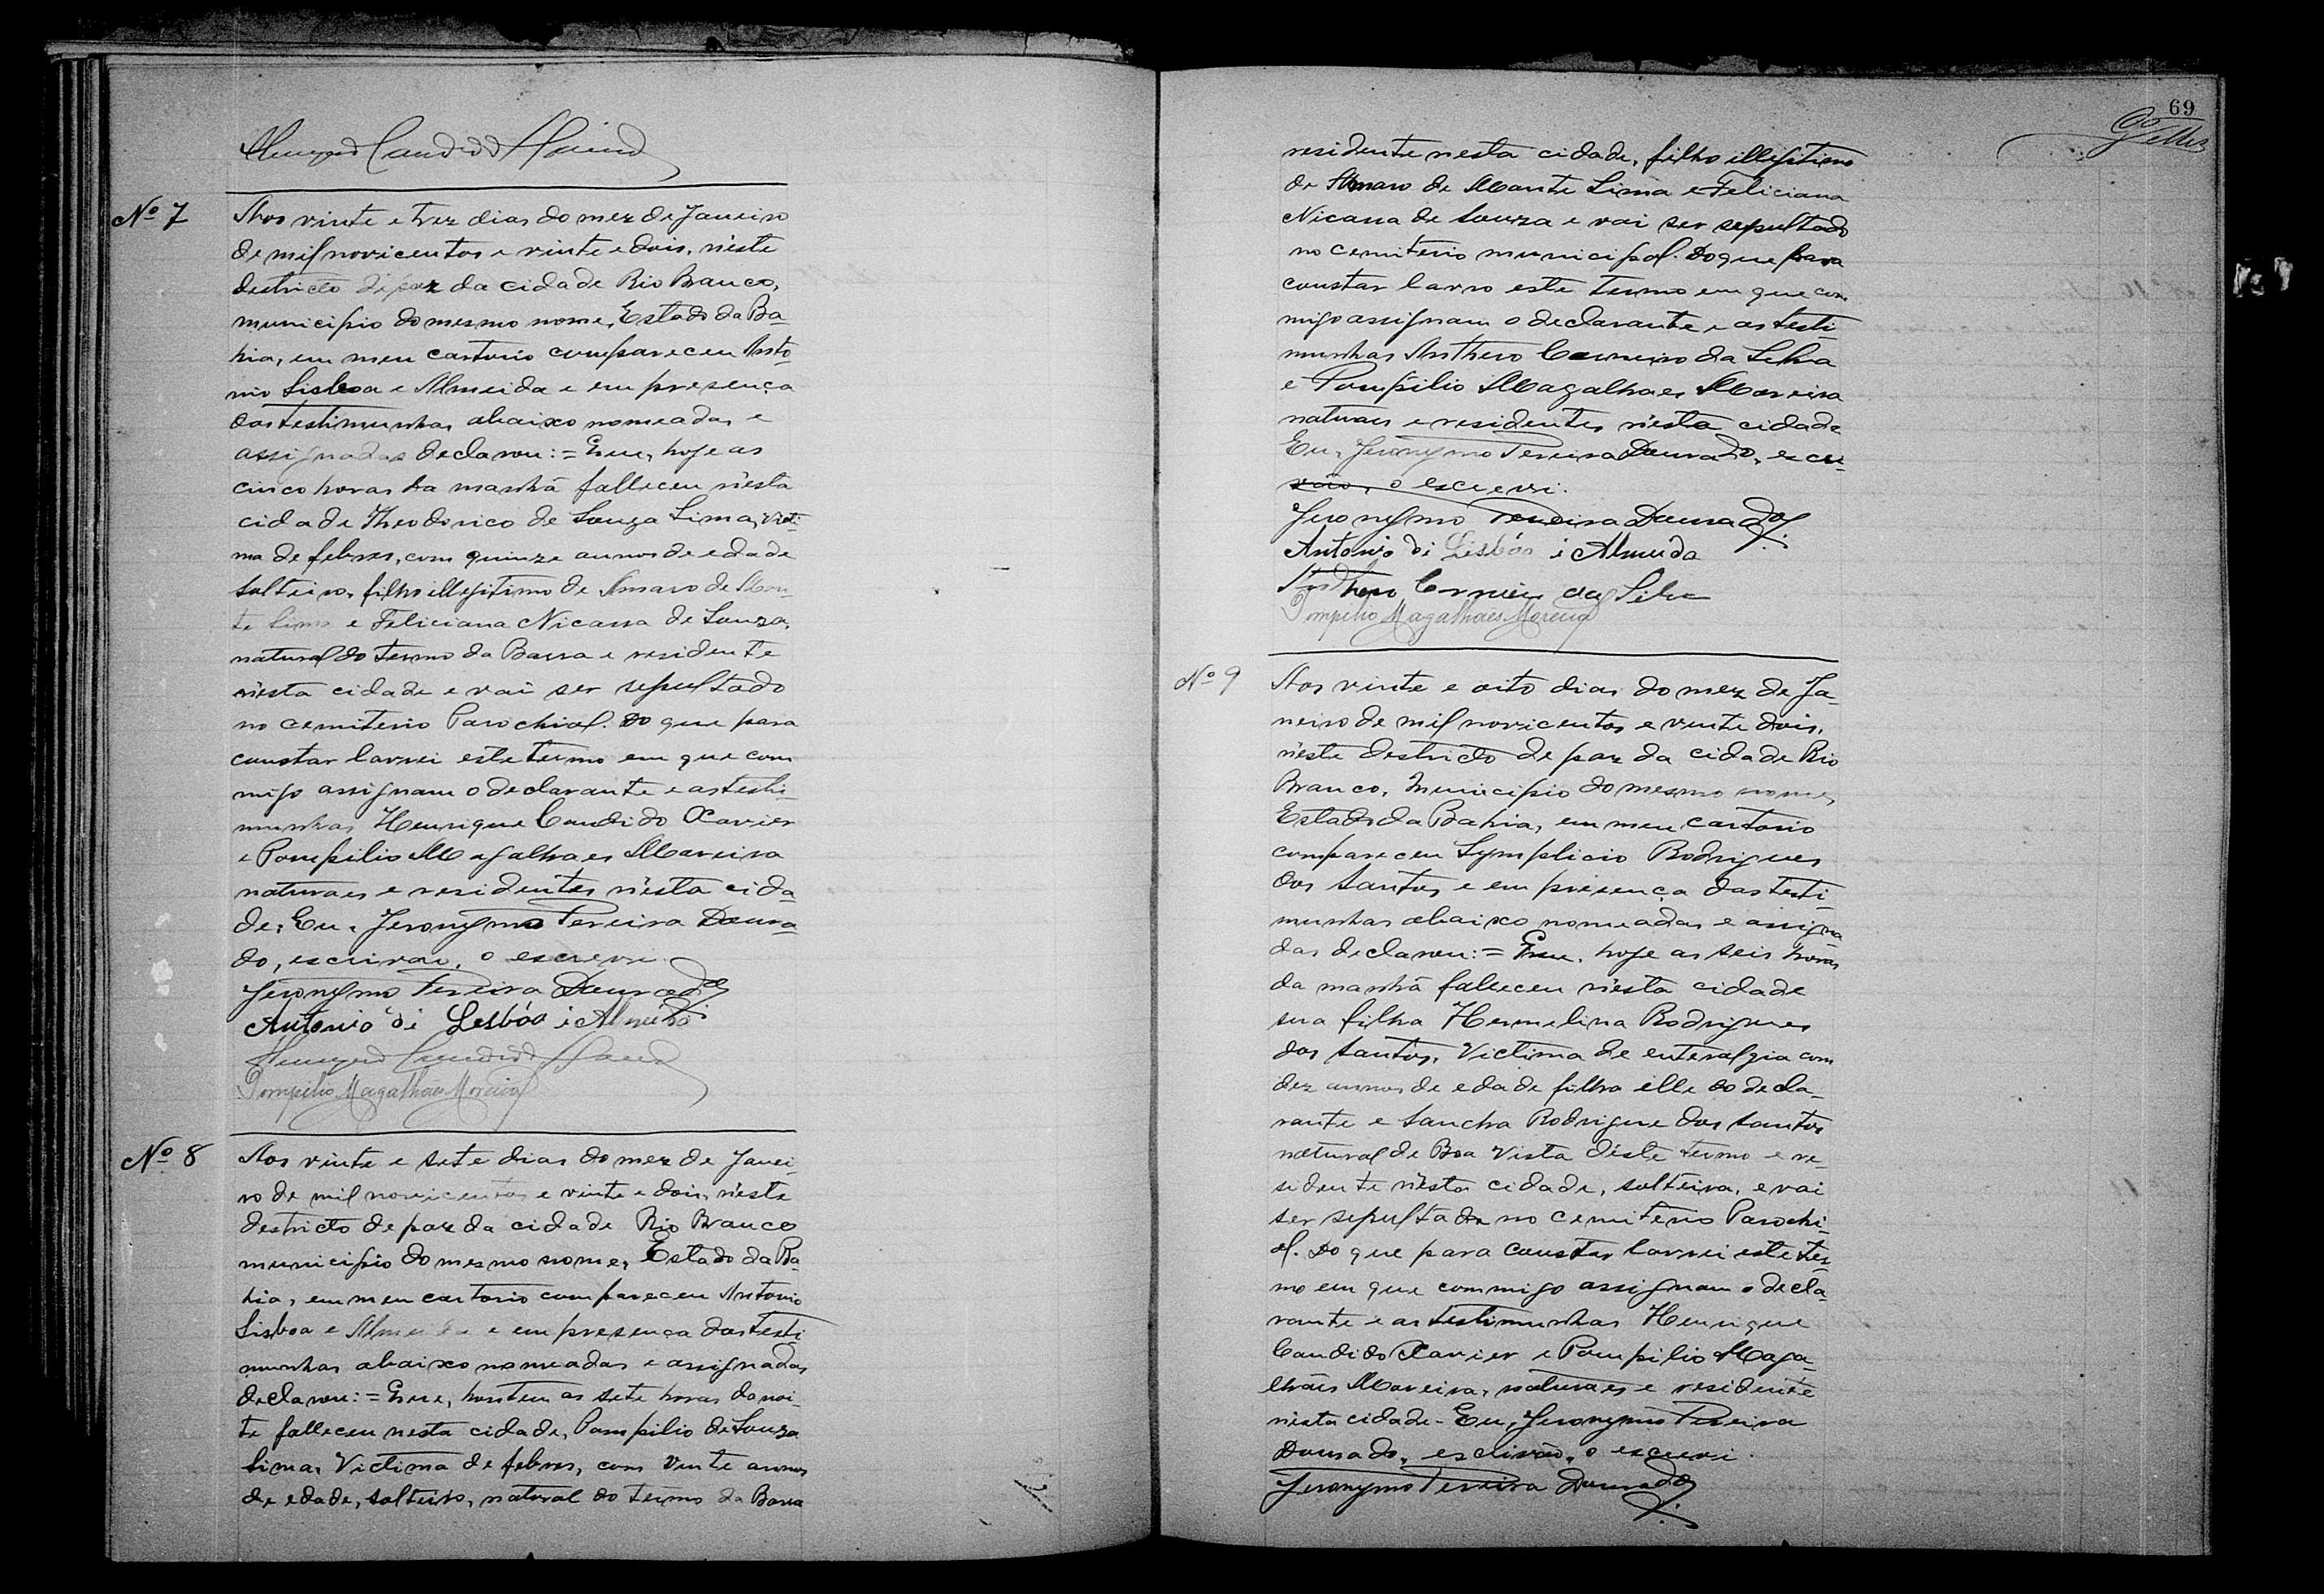 Henrique Candido Xavier
Nº 7
Aos vinte e trez dias do mez de Janeiro
de mil novicentos e vinte e dois, n'este
destricto de paz da cidade Rio Branco,
municipio do mesmo nome, Estado da Ba-
hia, em meu cartorio compareceu Anto-
nio Lisboa e Almeida e em presença
das testimunhas abaixo nomeadas e
assignadas declarou: = Que, hoje as
cinco horas da manhã falleceu n'esta
cidade Theodorico de Souza Lima, victi-
ma de febres, com quinze annos de edade
solteiro, filho illegitimo de Amaro de Mon-
te Lima e Feliciana Nicassa de Souza,
natural do termo da Barra e residente
n'esta cidade e vai ser sepultado
no cemiterio Parochial. Do que para
constar lavrei este termo em que com
migo assignam o declarante e as testi-
munhas Henrique Candido Xavier
e Pompilio Magalhaes Moreira
naturaes e residentes n'esta cida-
de, Eu, Jeronymo Pereira Doura-
do, escrivão, o escrevi.
Jeronymo Pereira Dourado
Antonio di Lesbôa i Almeida
Henrique Candido Xavier
Pompilio Magalhães Moreira
Nº 8
Aos vinte e sete dias do mez de Janei-
ro de mil novicentos e vinte e dois, n'este
destricto de paz da cidade Rio Branco
municipio do mesmo nome, Estado da Ba-
hia, em meu cartorio compareceu Antonio
Lisboa e Almeida e em presença das testi-
munhas abaixo nomeadas e assignadas
declarou: = Que, hontem as sete horas da noi-
te falleceu nesta cidade, Pompilio de Souza
Lima, Victima de febres, com vinte annos
de edade, solteiro, natural do termo da Barra
69
residente nesta cidade, filho illegitimo
de Amaro de Monte Lima e Feliciana
Nicassa de Souza e vai ser sepultado
no cemiterio municipal. Do que para
constar lavro este termo em que com
migo assignam o declarante e as testi-
munhas Anthero Carneiro da Silva
e Pompilio Magalhaes Moreira
naturaes e residentes n'esta cidade
Eu, Jeronymo Pereira Dourado, escri-
vão, o escrevi.
Jeronymo Pereira Dourado
Antonio di Lisbôa i Almeida
Anthero Carneiro da Silva
Pompilio Magalhães Moreira
Nº 9
Aos vinte e oito dias do mez de Ja-
neiro de mil novicentos e vinte dois,
n'este destricto de paz da cidade Rio
Branco, Municipio do mesmo nome,
Estado da Bahia, em meu cartorio
compareceu Symplicio Rodrigues
dos Santos e em presença das testi-
munhas abaixo nomeadas e assigna-
das declarou: = Que, hoje as seis horas
da manhã falleceu n'esta cidade
sua filha Hermelina Rodrigues
dos Santos, Victima de enteralgia com
dez annos de edade filha elle do decla-
rante e Sancha Rodrigue dos Santos
natural de Boa Vista d'este termo e re-
sidente n'esta cidade, solteira, e vai
ser sepultada no cemiterio Parochi-
al. Do que para constar lavrei este ter-
mo em que commigo assignam o decla-
rante e as testimunhas Henrique
Candido Xavier e Pompilio Maga-
lhães Moreira, naturaes e residente
n'esta cidade - Eu, Jeronymo Pereira
Dourado, esclivão, o escrevi.
Jeronymo Pereira Dourado